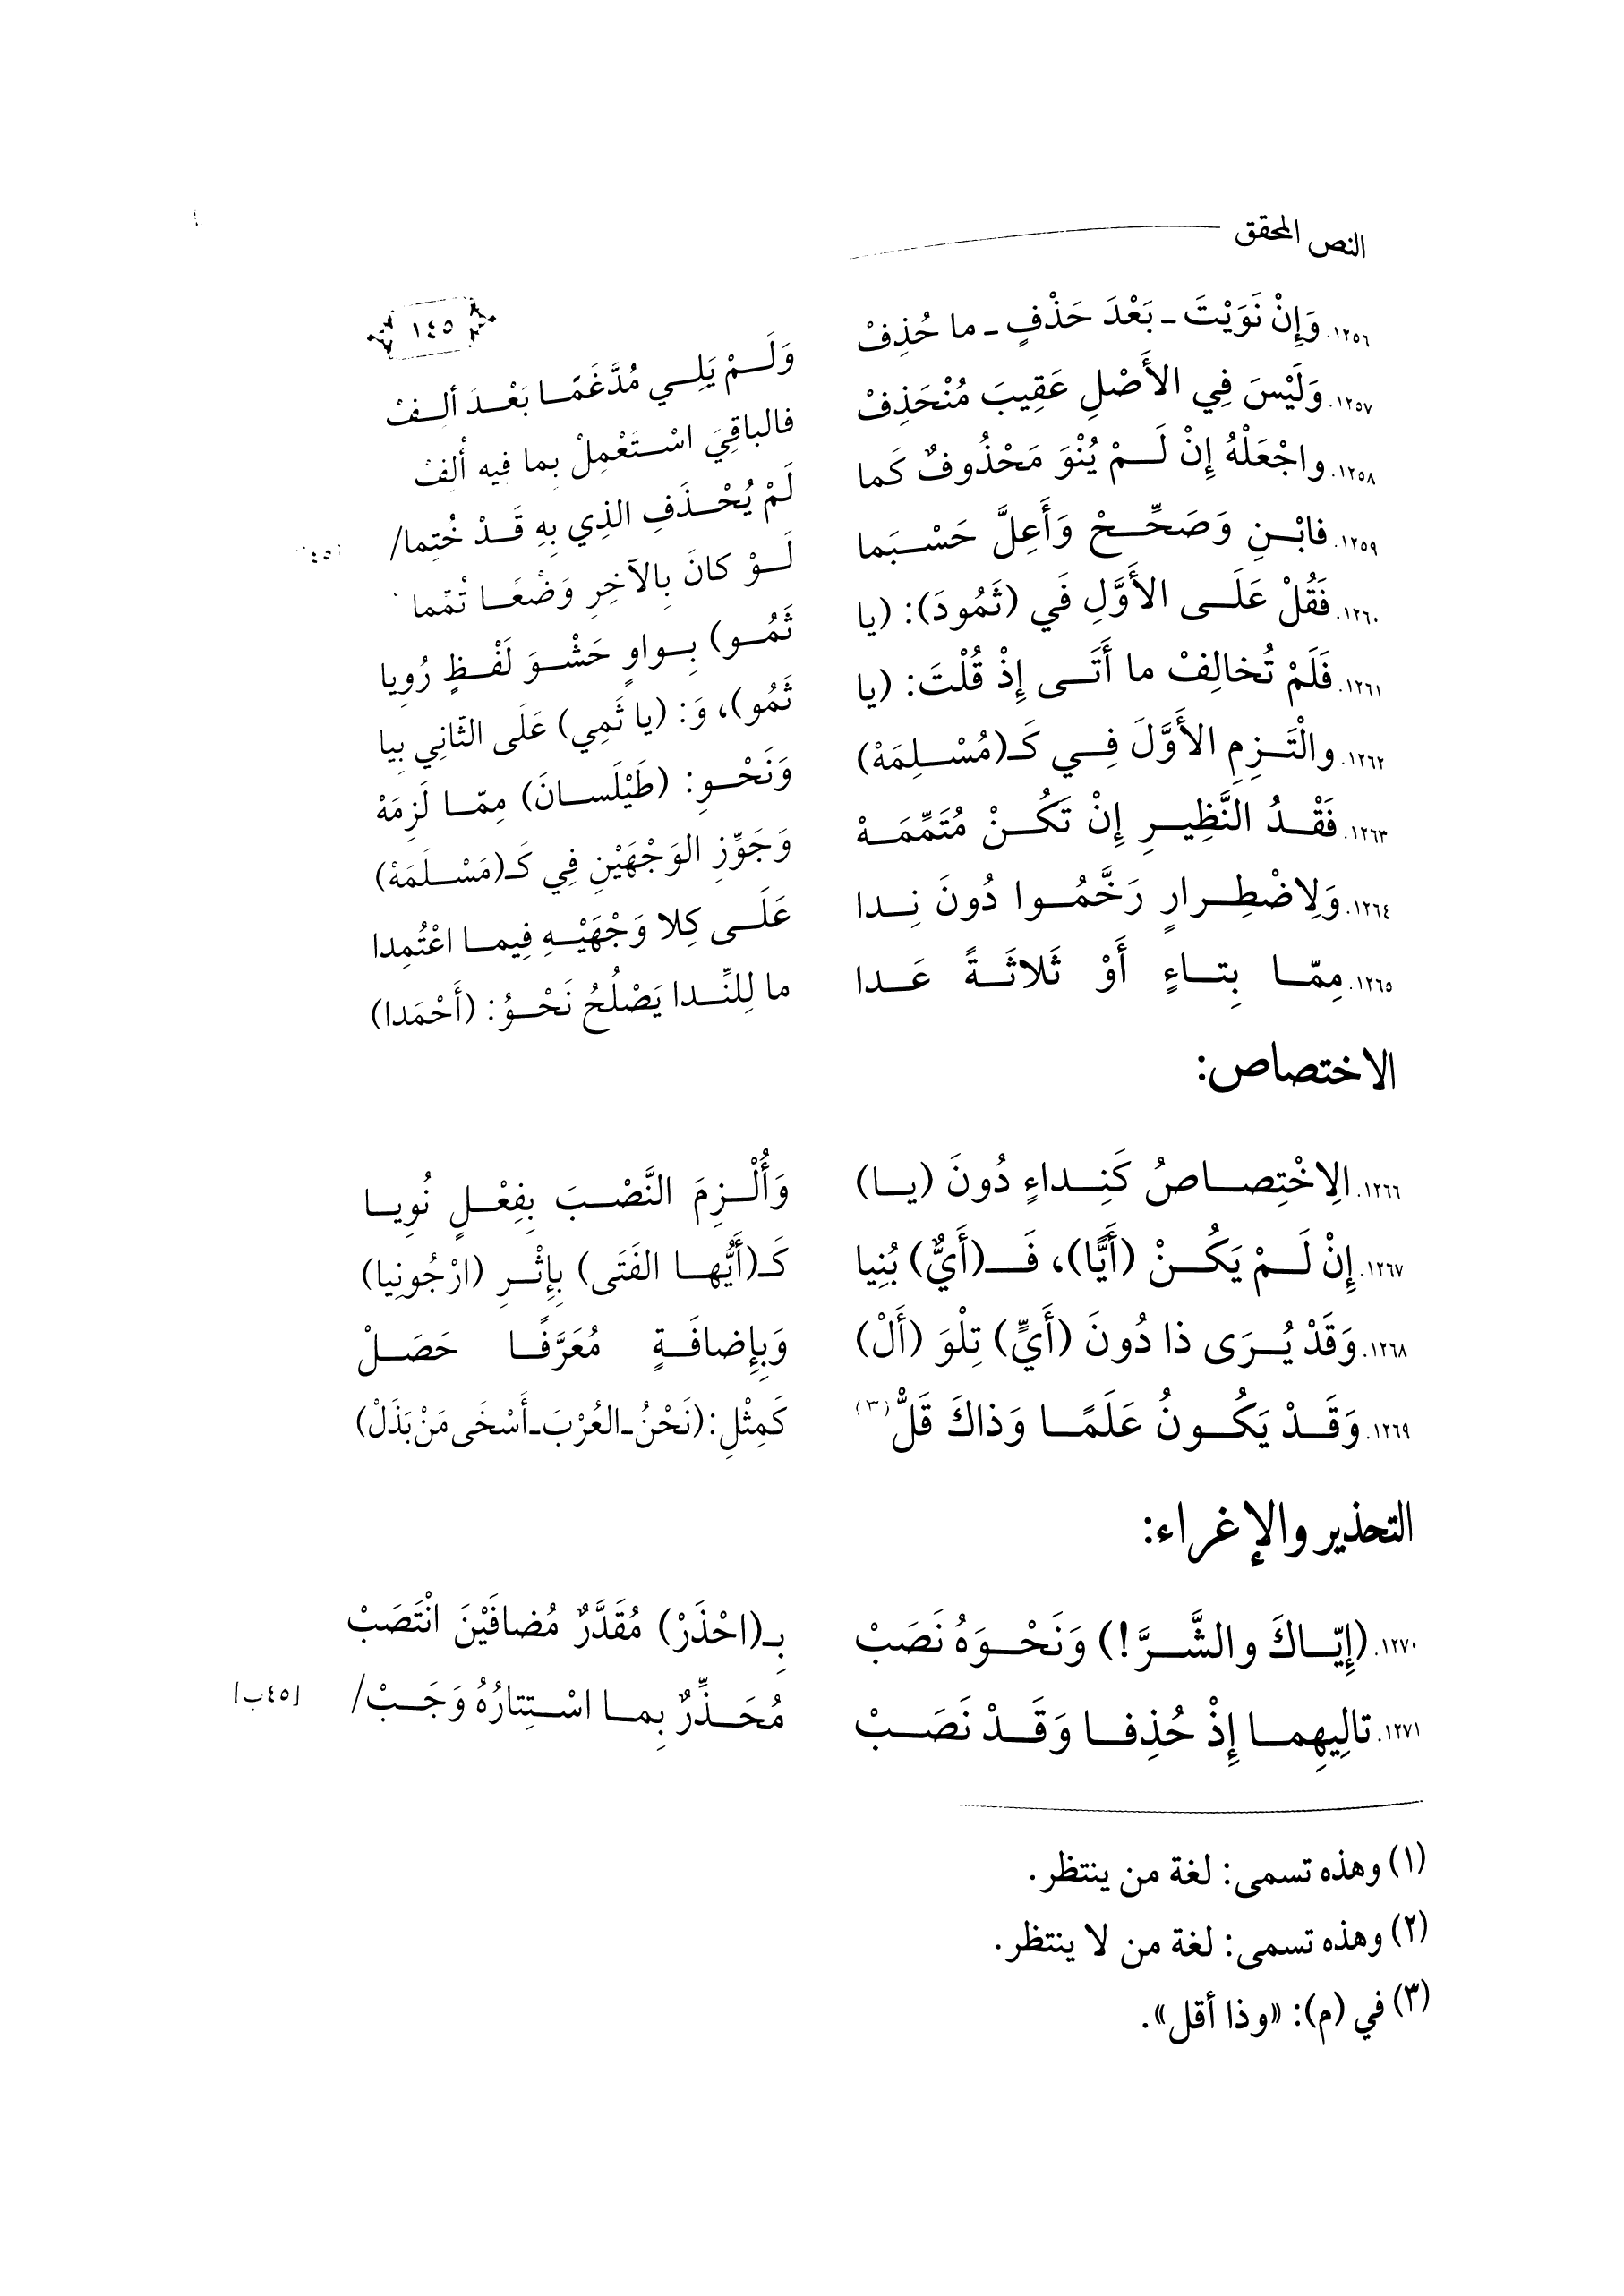 النص المحقق
١٤٥
١٢٥٦. وَإِنْ نَوَيْتَ - بَعْدَ حَذْفٍ - ما حُذِفْ وَلَمْ يَلِي مُدَّغَمًا بَعْدَ أَلِفْ
١٢٥٧. وَلَيْسَ فِي الأَصْلِ عَقِيبَ مُنْحَذِفْ فالباقِيَ اسْتَعْمِلْ بِما فِيه أُلِفْ
١٢٥٨. واجْعَلْهُ إِنْ لَمْ يُنْوَ مَحْذُوفٌ كَما لَمْ يُحْذَفِ الذِي بِهِ قَدْ خُتِما/
١٢٥٩. فابْنِ وَصَحِّحْ وَأَعِلَّ حَسْبَما لَوْ كانَ بِالآخِرِ وَضْعًا تُمِّما
١٢٦٠. فَقُلْ عَلَى الأَوَّلِ فَي (ثَمُودَ): (يا ثَمُو) بِواوٍ حَشْوَ لَفْظٍ رُوِيا
١٢٦١. فَلَمْ تُخالِفْ ما أَتَى إِذْ قُلْتَ: (يا ثَمُو)، وَ: (يا ثَمِي) عَلَى الثّانِي بِيا
١٢٦٢. والْتَزِمِ الأَوَّلَ فِي كَـ(مُسْلِمَهْ) وَنَحْوِ: (طَيْلَسانَ) مِمّا لَزِمَهْ
١٢٦٣. فَقْدُ النَّظِيرِ إِنْ تَكُنْ مُتَمِّمَهْ وَجَوِّزِ الوَجْهَيْنِ فِي كَـ(مَسْلَمَهْ)
١٢٦٤. وَلِاضْطِرارٍ رَخَّمُوا دُونَ نِدا عَلَى كِلا وَجْهَيْهِ فِيما اعْتُمِدا
١٢٦٥. مِمّا بِتاءٍ أَوْ ثَلاثَةً عَدا ما لِلنِّدا يَصْلُحُ نَحْوُ: (أَحْمَدا)
الاختصاص:
١٢٦٦. الِاخْتِصاصُ كَنِداءٍ دُونَ (يا) وَأُلْزِمَ النَّصْبَ بِفِعْلٍ نُوِيا
١٢٦٧. إِنْ لَمْ يَكُنْ (أَيًّا)، فَـ(أَيٌّ) بُنِيا كَـ(أَيُّها الفَتَى) بِإِثْرِ (ارْجُونِيا)
١٢٦٨. وَقَدْ يُرَى ذا دُونَ (أَيٍّ) تِلْوَ (أَلْ) وَبِإِضافَةٍ مُعَرَّفًا حَصَلْ
١٢٦٩. وَقَدْ يَكُونُ عَلَمًا وَذاكَ قَلّْ(٣) كَمِثْلِ: (نَحْنُ - العُرْبَ - أَسْخَى مَنْ بَذَلْ)
التحذير والإغراء:
١٢٧٠. (إِيّاكَ والشَّرَّ!) وَنَحْوَهُ نَصَبْ بِـ(احْذَرْ) مُقَدَّرٌ مُضافَيْنَ انْتَصَبْ
١٢٧١. تالِيهِما إِذْ حُذِفا وَقَدْ نَصَبْ مُحَذِّرٌ بِما اسْتِتارُهُ وَجَبْ/ [٤٥ب]
(١) وهذه تسمى: لغة من ينتظر.
(٢) وهذه تسمى: لغة من لا ينتظر.
(٣) في (م): «وذا أقل».